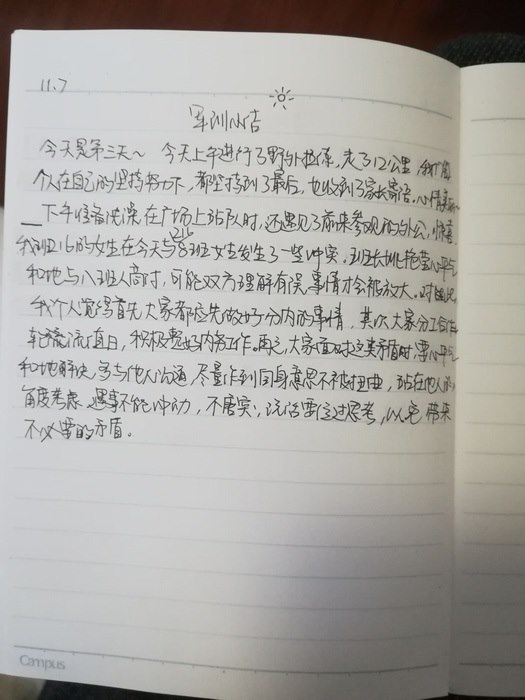 11.7
军训小结
今天是第三天~ 今天上午进行了野外拉练,走了12公里,我们
个人在自己的坚持努力下,都坚持到了最后,也收到了家长寄语,心情
下午 在广场上站队时,还遇见了前来参观的外公,惊喜
216
我班16的女生在今天与8班女生发生了一些冲突,班长 心平气
和地与八班人商讨,可能双方理解有误,事情才会被放大,对
我个人觉得首先大家都应先做好分内的事情,其次大家分工合作
轮流值日,积极 内务工作。 大家面对这类矛盾时,要心平气
和地解决,多与他人沟通,尽量作到同身意思不被扭曲,站在他人的
角度考虑 遇事不能冲动,不 实,说话要经过思考,以免带来
不必要的矛盾。
Campus